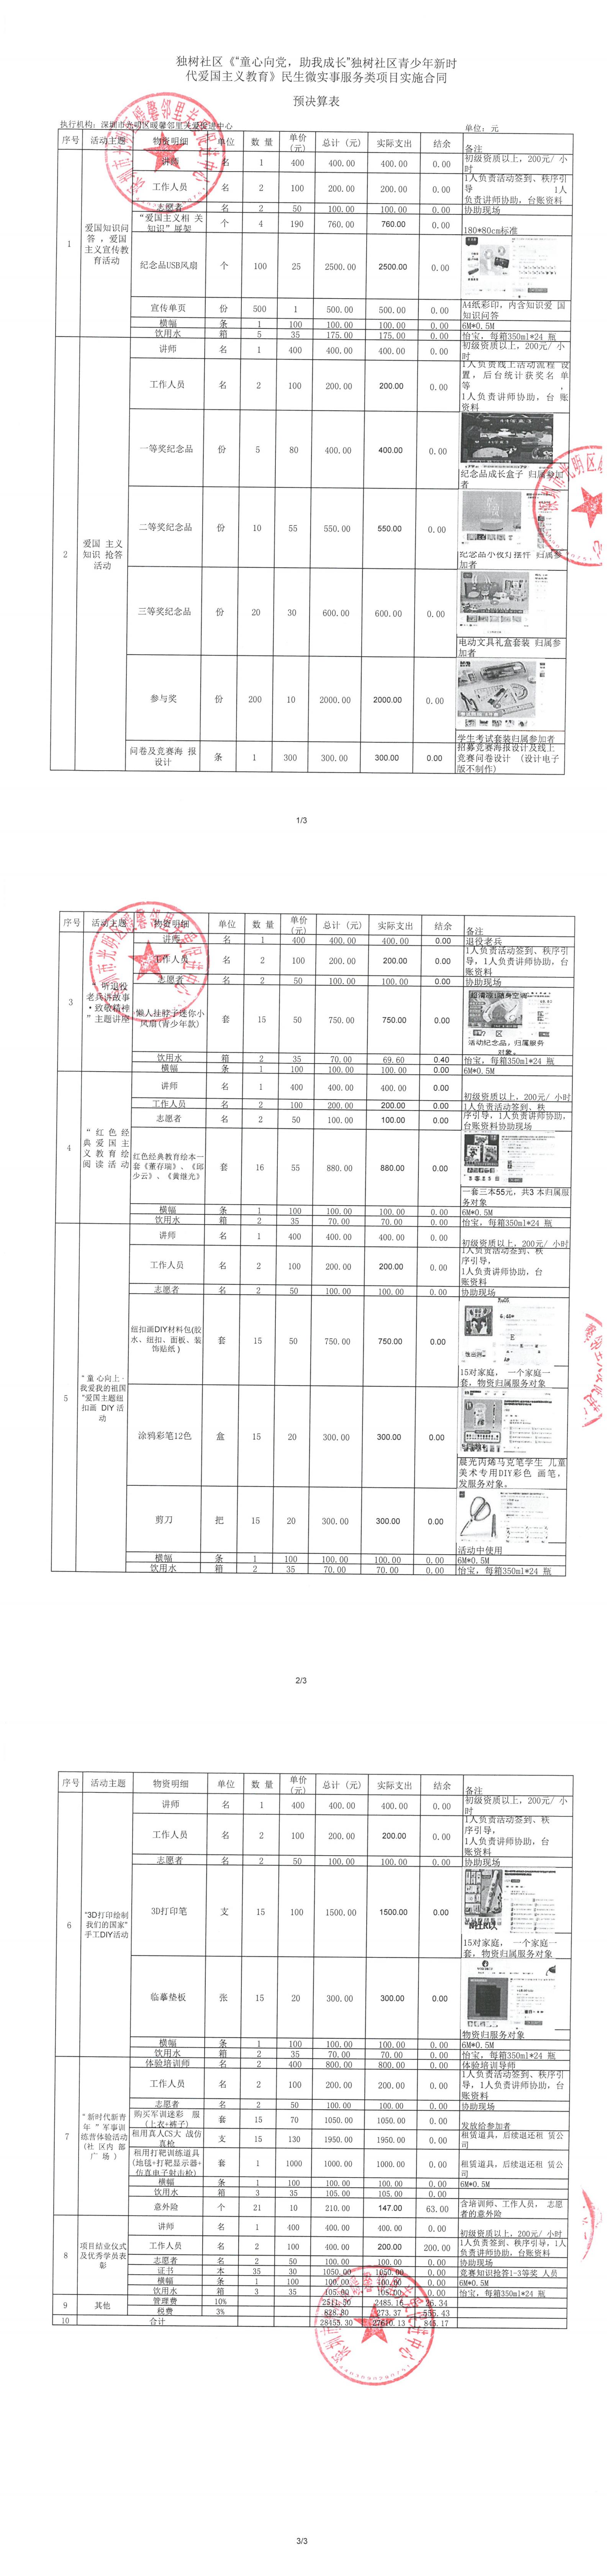 独树社区《“童心向党，助我成长”独树社区青少年新时
代爱国主义教育》民生微实事服务类项目实施合同
预决算表
执行机构：深圳市光明区暖馨邻里关爱促进中心 单位：元
序号 活动主题 物资明细 单位 数 量 单价(元) 总计 (元) 实际支出 结余 备注
1 爱国知识问答 ，爱国主义宣传教育活动
讲师 名 1 400 400.00 400.00 0.00 初级资质以上，200元/ 小时
工作人员 名 2 100 200.00 200.00 0.00 1人负责活动签到、秩序引导 1人负责讲师协助，台账资料
志愿者 名 2 50 100.00 100.00 0.00 协助现场
“爱国主义相 关知识”展架 个 4 190 760.00 760.00 0.00 180*80cm标准
纪念品USB风扇 个 100 25 2500.00 2500.00 0.00
宣传单页 份 500 1 500.00 500.00 0.00 A4纸彩印，内含知识爱 国知识问答
横幅 条 1 100 100.00 100.00 0.00 6M*0.5M
饮用水 箱 5 35 175.00 175.00 0.00 怡宝，每箱350ml*24 瓶
2 爱国 主义知识 抢答活动
讲师 名 1 400 400.00 400.00 0.00 初级资质以上，200元/ 小时
工作人员 名 2 100 200.00 200.00 0.00 1人负责线上活动流程 设置，后台统计获奖名 单等 ，1人负责讲师协助，台 账资料
一等奖纪念品 份 5 80 400.00 400.00 0.00 纪念品成长盒子 归属参加者
二等奖纪念品 份 10 55 550.00 550.00 0.00 纪念品小夜灯摆件 归属参加者
三等奖纪念品 份 20 30 600.00 600.00 0.00 电动文具礼盒套装 归属参加者
参与奖 份 200 10 2000.00 2000.00 0.00 学生考试套装归属参加者
问卷及竞赛海 报设计 条 1 300 300.00 300.00 0.00 招募竞赛海报设计及线上竞赛问卷设计 (设计电子版不制作)
1/3
序号 活动主题 物资明细 单位 数 量 单价(元) 总计 (元) 实际支出 结余 备注
3 “ 听退役老兵讲故事·致敬精神 ”主题讲座
讲师 名 1 400 400.00 400.00 0.00 退役老兵
工作人员 名 2 100 200.00 200.00 0.00 1人负责活动签到、秩序引导，1人负责讲师协助，台账资料
志愿者 名 2 50 100.00 100.00 0.00 协助现场
懒人挂脖子迷你小风扇(青少年款) 套 15 50 750.00 750.00 0.00 活动纪念品，归属服务对象。
饮用水 箱 2 35 70.00 69.60 0.40 怡宝，每箱350ml*24 瓶
横幅 条 1 100 100.00 100.00 0.00 6M*0.5M
4 “ 红色 经典 爱国 主义 教育 绘阅 读活 动
讲师 名 1 400 400.00 400.00 0.00 初级资质以上，200元/ 小时
工作人员 名 2 100 200.00 200.00 0.00 1人负责活动签到、秩
志愿者 名 2 50 100.00 100.00 0.00 序引导，1人负责讲师协助，台账资料协助现场
红色经典教育绘本一套《董存瑞》、《邱少云》、《黄继光》 套 16 55 880.00 880.00 0.00 一套三本55元，共3 本归属服务对象
横幅 条 1 100 100.00 100.00 0.00 6M*0.5M
饮用水 箱 2 35 70.00 70.00 0.00 怡宝，每箱350ml*24 瓶
5 “童 心向上·我爱我的祖国”爱国主题纽扣画 DIY 活动
讲师 名 1 400 400.00 400.00 0.00 初级资质以上，200元/ 小时
工作人员 名 2 100 200.00 200.00 0.00 1人负责活动签到、秩序引导，1人负责讲师协助，台账资料
志愿者 名 2 50 100.00 100.00 0.00 协助现场
纽扣画DIY材料包(胶水、纽扣、面板、装饰贴纸 ) 套 15 50 750.00 750.00 0.00 15对家庭， 一个家庭一套，物资归属服务对象
涂鸦彩笔12色 盒 15 20 300.00 300.00 0.00 晨光丙烯马克笔学生 儿童美术专用DIY彩色 画笔，发服务对象。
剪刀 把 15 20 300.00 300.00 0.00 活动中使用
横幅 条 1 100 100.00 100.00 0.00 6M*0.5M
饮用水 箱 2 35 70.00 70.00 0.00 怡宝，每箱350ml*24 瓶
2/3
序号 活动主题 物资明细 单位 数 量 单价(元) 总计 (元) 实际支出 结余 备注
6 “3D打印绘制我们的国家”手工DIY活动
讲师 名 1 400 400.00 400.00 0.00 初级资质以上，200元/ 小时
工作人员 名 2 100 200.00 200.00 0.00 1人负责活动签到、秩序引导，1人负责讲师协助，台账资料
志愿者 名 2 50 100.00 100.00 0.00 协助现场
3D打印笔 支 15 100 1500.00 1500.00 0.00 15对家庭， 一个家庭一套，物资归属服务对象
临摹垫板 张 15 20 300.00 300.00 0.00 物资归服务对象
横幅 条 1 100 100.00 100.00 0.00 6M*0.5M
饮用水 箱 2 35 70.00 70.00 0.00 怡宝，每箱350ml*24 瓶
7 “新时代新青年 ”军事训练营体验活动 (社 区内 部广 场 )
体验培训师 名 2 400 800.00 800.00 0.00 体验培训导师
工作人员 名 2 100 200.00 200.00 0.00 1人负责活动签到、秩序引导，1人负责讲师协助，台账资料
志愿者 名 2 50 100.00 100.00 0.00 协助现场
购买军训迷彩 服(上衣+裤子) 套 15 70 1050.00 1050.00 0.00 发放给参加者
租用真人CS大 战仿真枪 支 15 130 1950.00 1950.00 0.00 租赁道具，后续退还租 赁公司
租用打靶训练道具(地毯+打靶显示器+仿真电子射击枪) 套 1 1000 1000.00 1000.00 0.00 租赁道具，后续退还租 赁公司
横幅 条 1 100 100.00 100.00 0.00 6M*0.5M
饮用水 箱 3 35 105.00 105.00 0.00
意外险 个 21 10 210.00 147.00 63.00 含培训师、工作人员， 志愿者的意外险
8 项目结业仪式及优秀学员表彰
讲师 名 1 400 400.00 400.00 0.00 初级资质以上，200元/ 小时
工作人员 名 2 100 400.00 200.00 200.00 1人负责活动签到、秩序引导，1人负责讲师协助，台账资料
志愿者 名 2 50 100.00 100.00 0.00 协助现场
证书 本 35 30 1050.00 1050.00 0.00 竞赛知识抢答1-3等奖 人员
横幅 条 1 100 100.00 100.00 0.00 6M*0.5M
饮用水 箱 3 35 105.00 105.00 0.00 怡宝，每箱350ml*24 瓶
9 其他
管理费 10% 2511.50 2485.16 26.34
税费 3% 828.80 273.37 555.43
10 合计 28455.30 27610.13 845.17
3/3